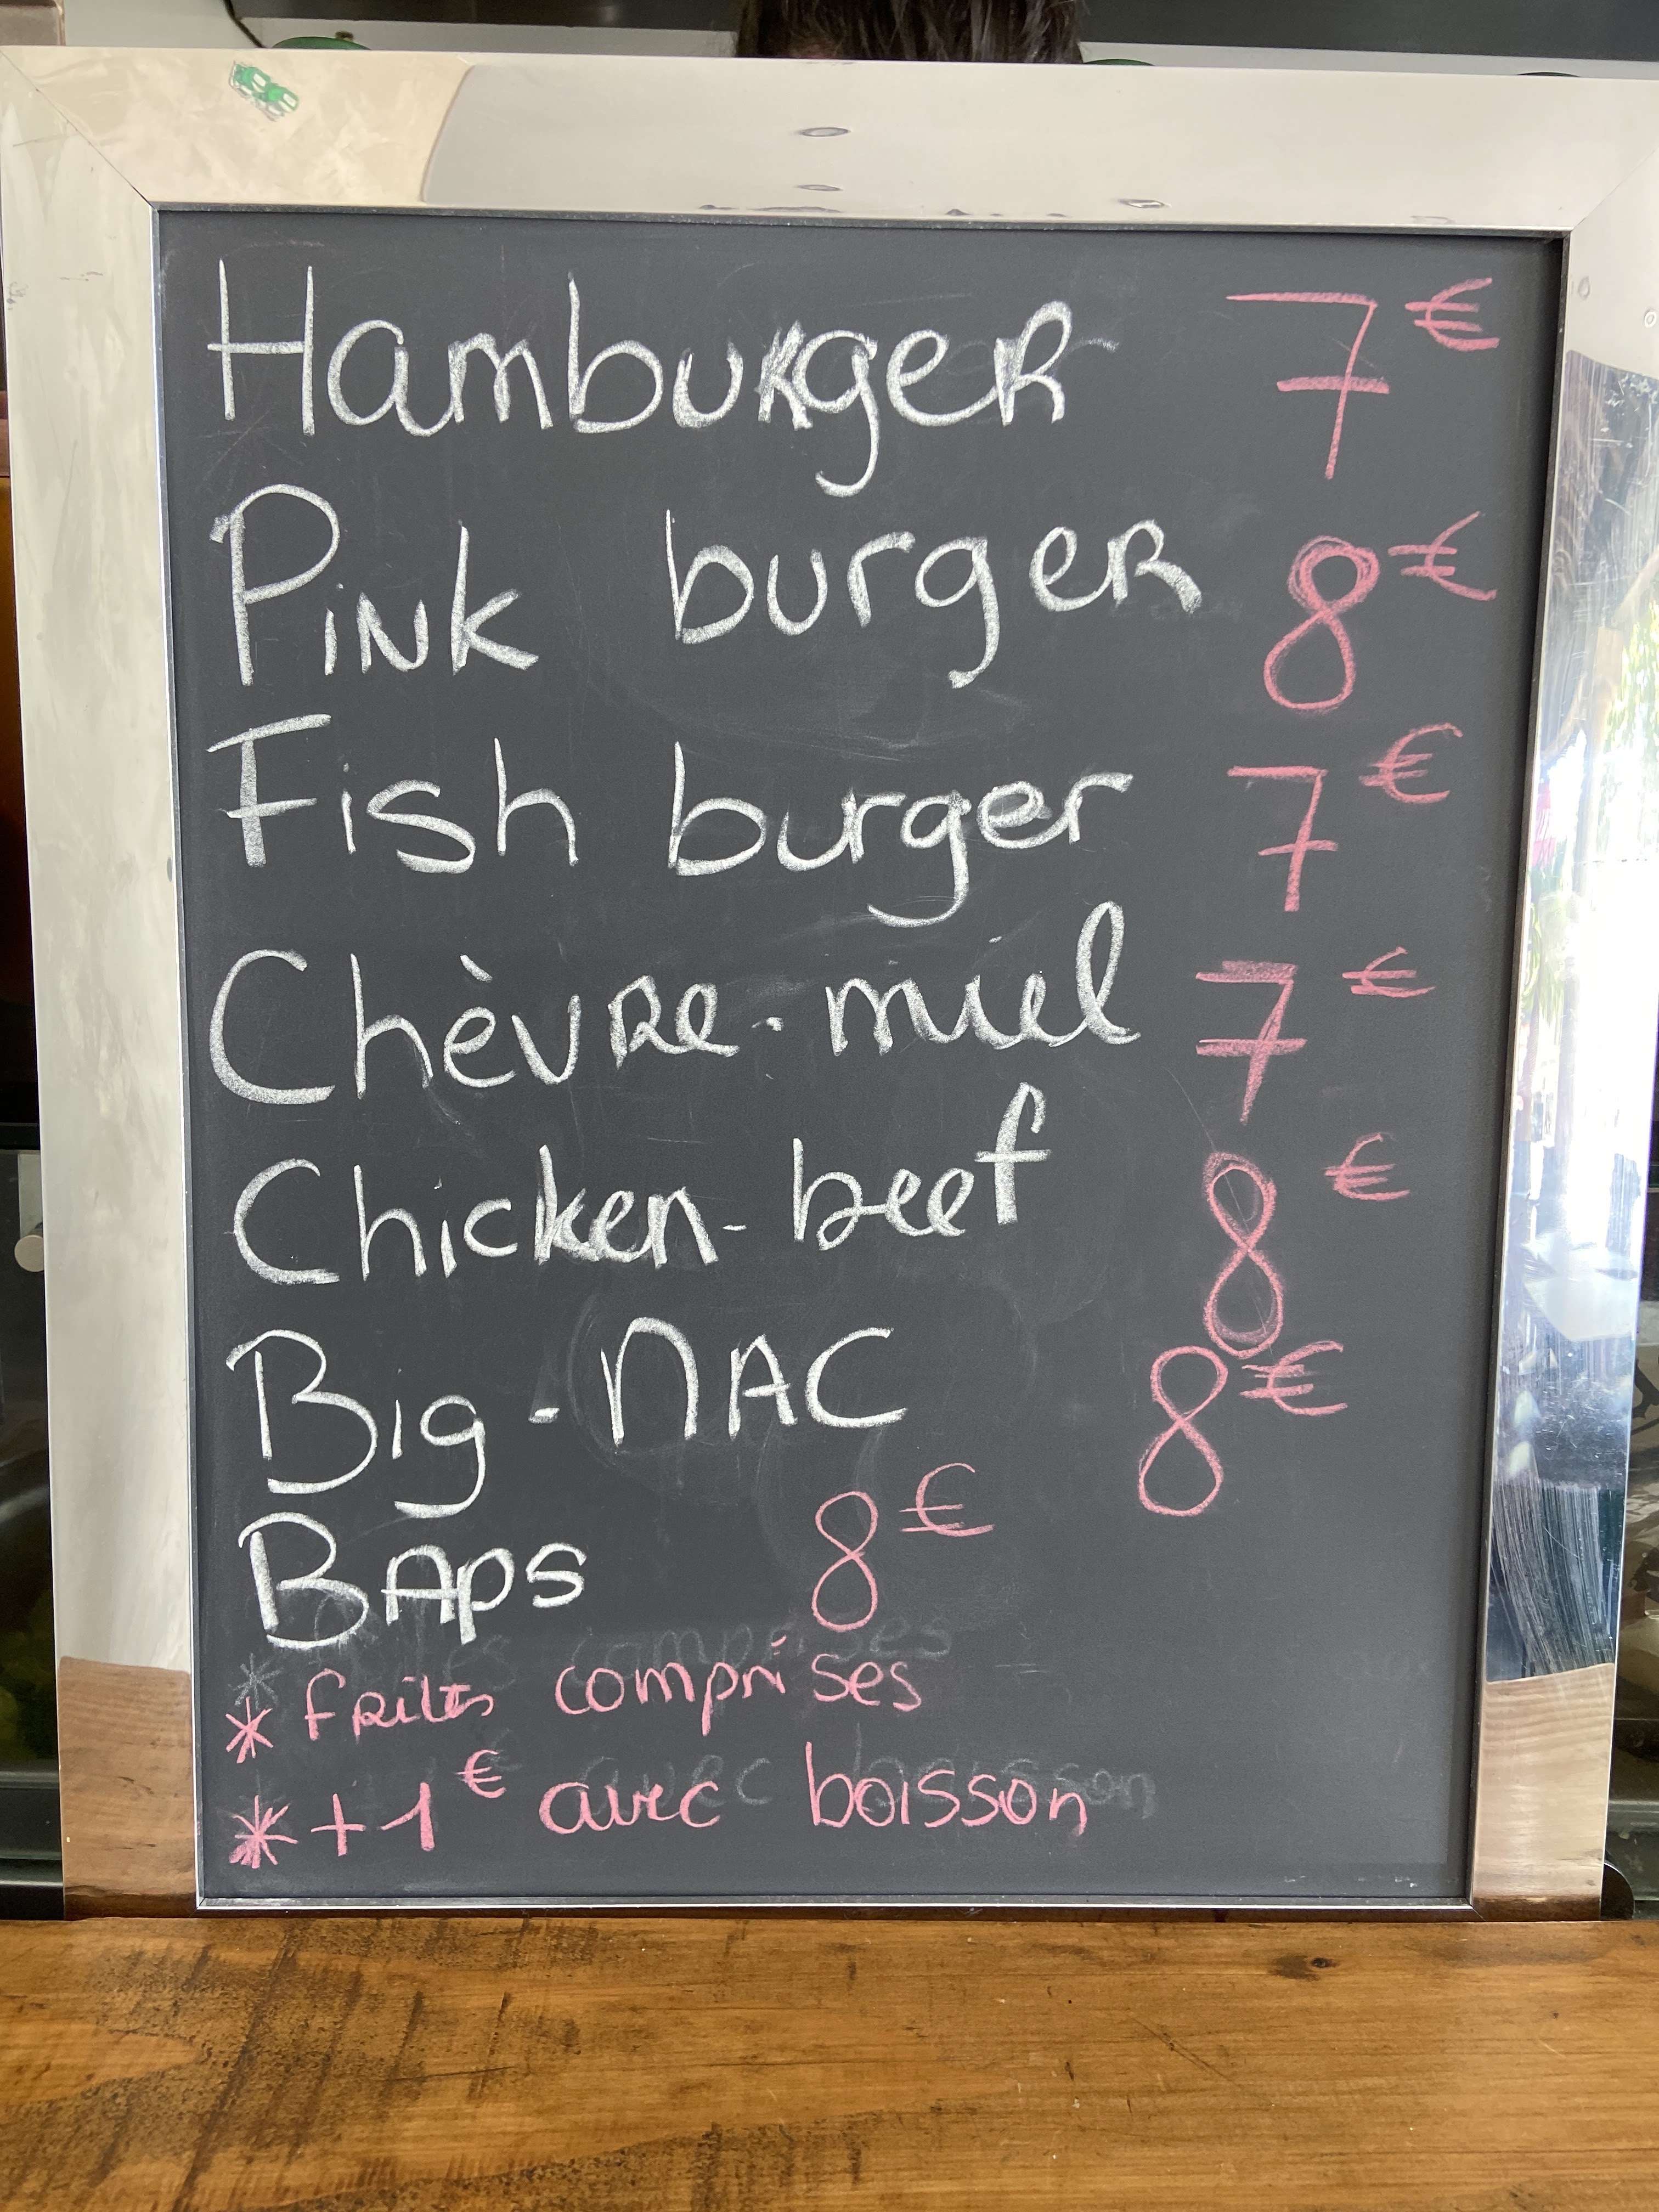 Hamburger 7€
Pink burger 8€
Fish burger 7€
Chèvre-miel 7€
Chicken-beef 8€
Big-NAC 8€
BAps 8€
* frites comprises
* +1€ avec boisson